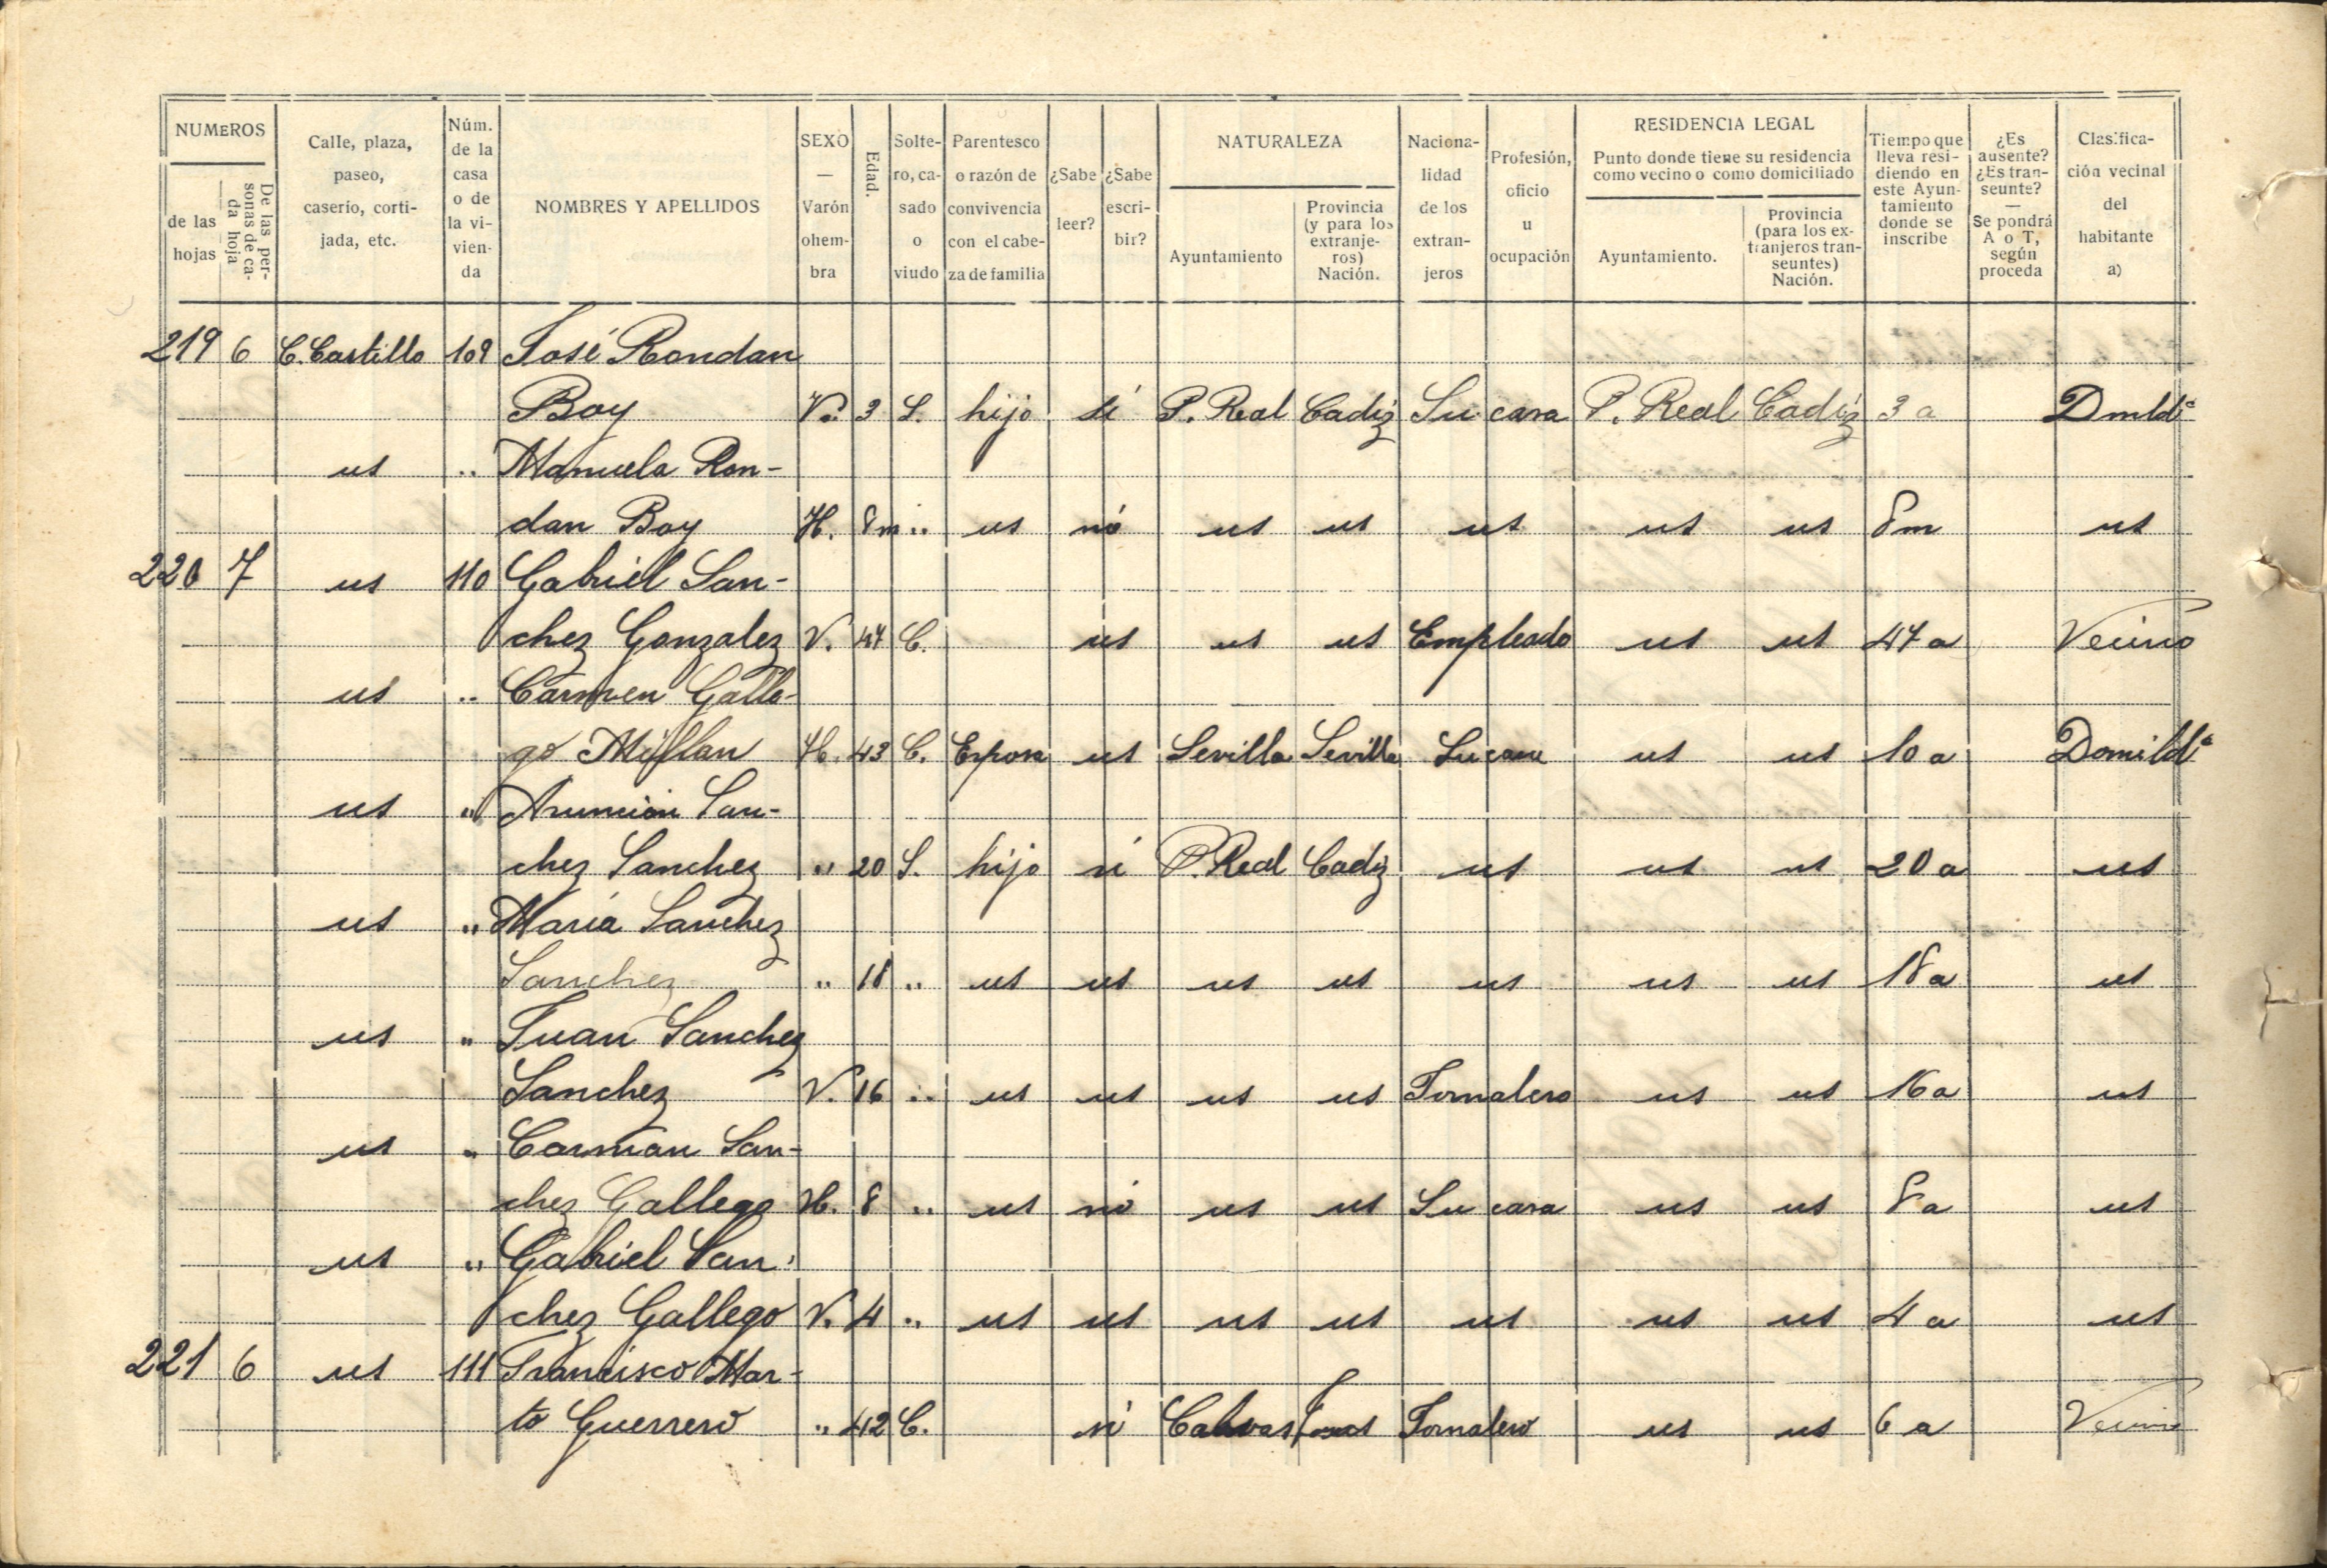 NUMEROS
de las hojas
De las personas de cada hoja
Calle, plaza, paseo, caserio, cortijada, etc.
Núm. de la casa o de la vivienda
NOMBRES Y APELLIDOS
SEXO — Varón ohembra
Edad.
Soltero, casado o viudo
Parentesco o razón de convivencia con el cabeza de familia
¿Sabe leer?
¿Sabe escribir?
NATURALEZA
Ayuntamiento
Provincia (y para los extranjeros) Nación.
Nacionalidad de los extranjeros
Profesión, oficio u ocupación
RESIDENCIA LEGAL
Punto donde tiene su residencia como vecino o como domiciliado
Ayuntamiento.
Provincia (para los extranjeros transeuntes) Nación.
Tiempo que lleva residiendo en este Ayuntamiento donde se inscribe
¿Es ausente? ¿Es transeunte? — Se pondrá A o T, según proceda
Clasificación vecinal del habitante a)
219 6 C. Castillo 109 José Rondan
Boy V. 3 S. hijo si P. Real Cadiz Su casa P. Real Cadiz 3 a Dmldº
us .. Manuela Ron-
dan Boy H. 8 m .. us nó us us us us us 8 m us
220 7 us 110 Gabriel San-
chez Gonzalez V. 47 C. us us us Empleado us us 47 a Vecino
us .. Carmen Galle-
go Millan H. 43 C. Esposa us Sevilla Sevilla Su casa us us 10 a Domildº
us " Asuncion San-
chez Sanchez " 20 S. hijo si P. Real Cadiz us us us 20 a us
us " Maria Sanchez
Sanchez " 18 .. us us us us us us us 18 a us
us " Juan Sanchez
Sanchez V. 16 .. us us us us Jornalero us us 16 a us
us " Carman San-
chez Gallego H. 8 .. us nó us us Su casa us us 8 a us
us " Gabriel San-
chez Gallego V. 4 .. us us us us us us us 4 a us
221 6 us 111 Francisco Mar-
to Guerrero " 42 C. si Jornalero us us 6 a Vecino